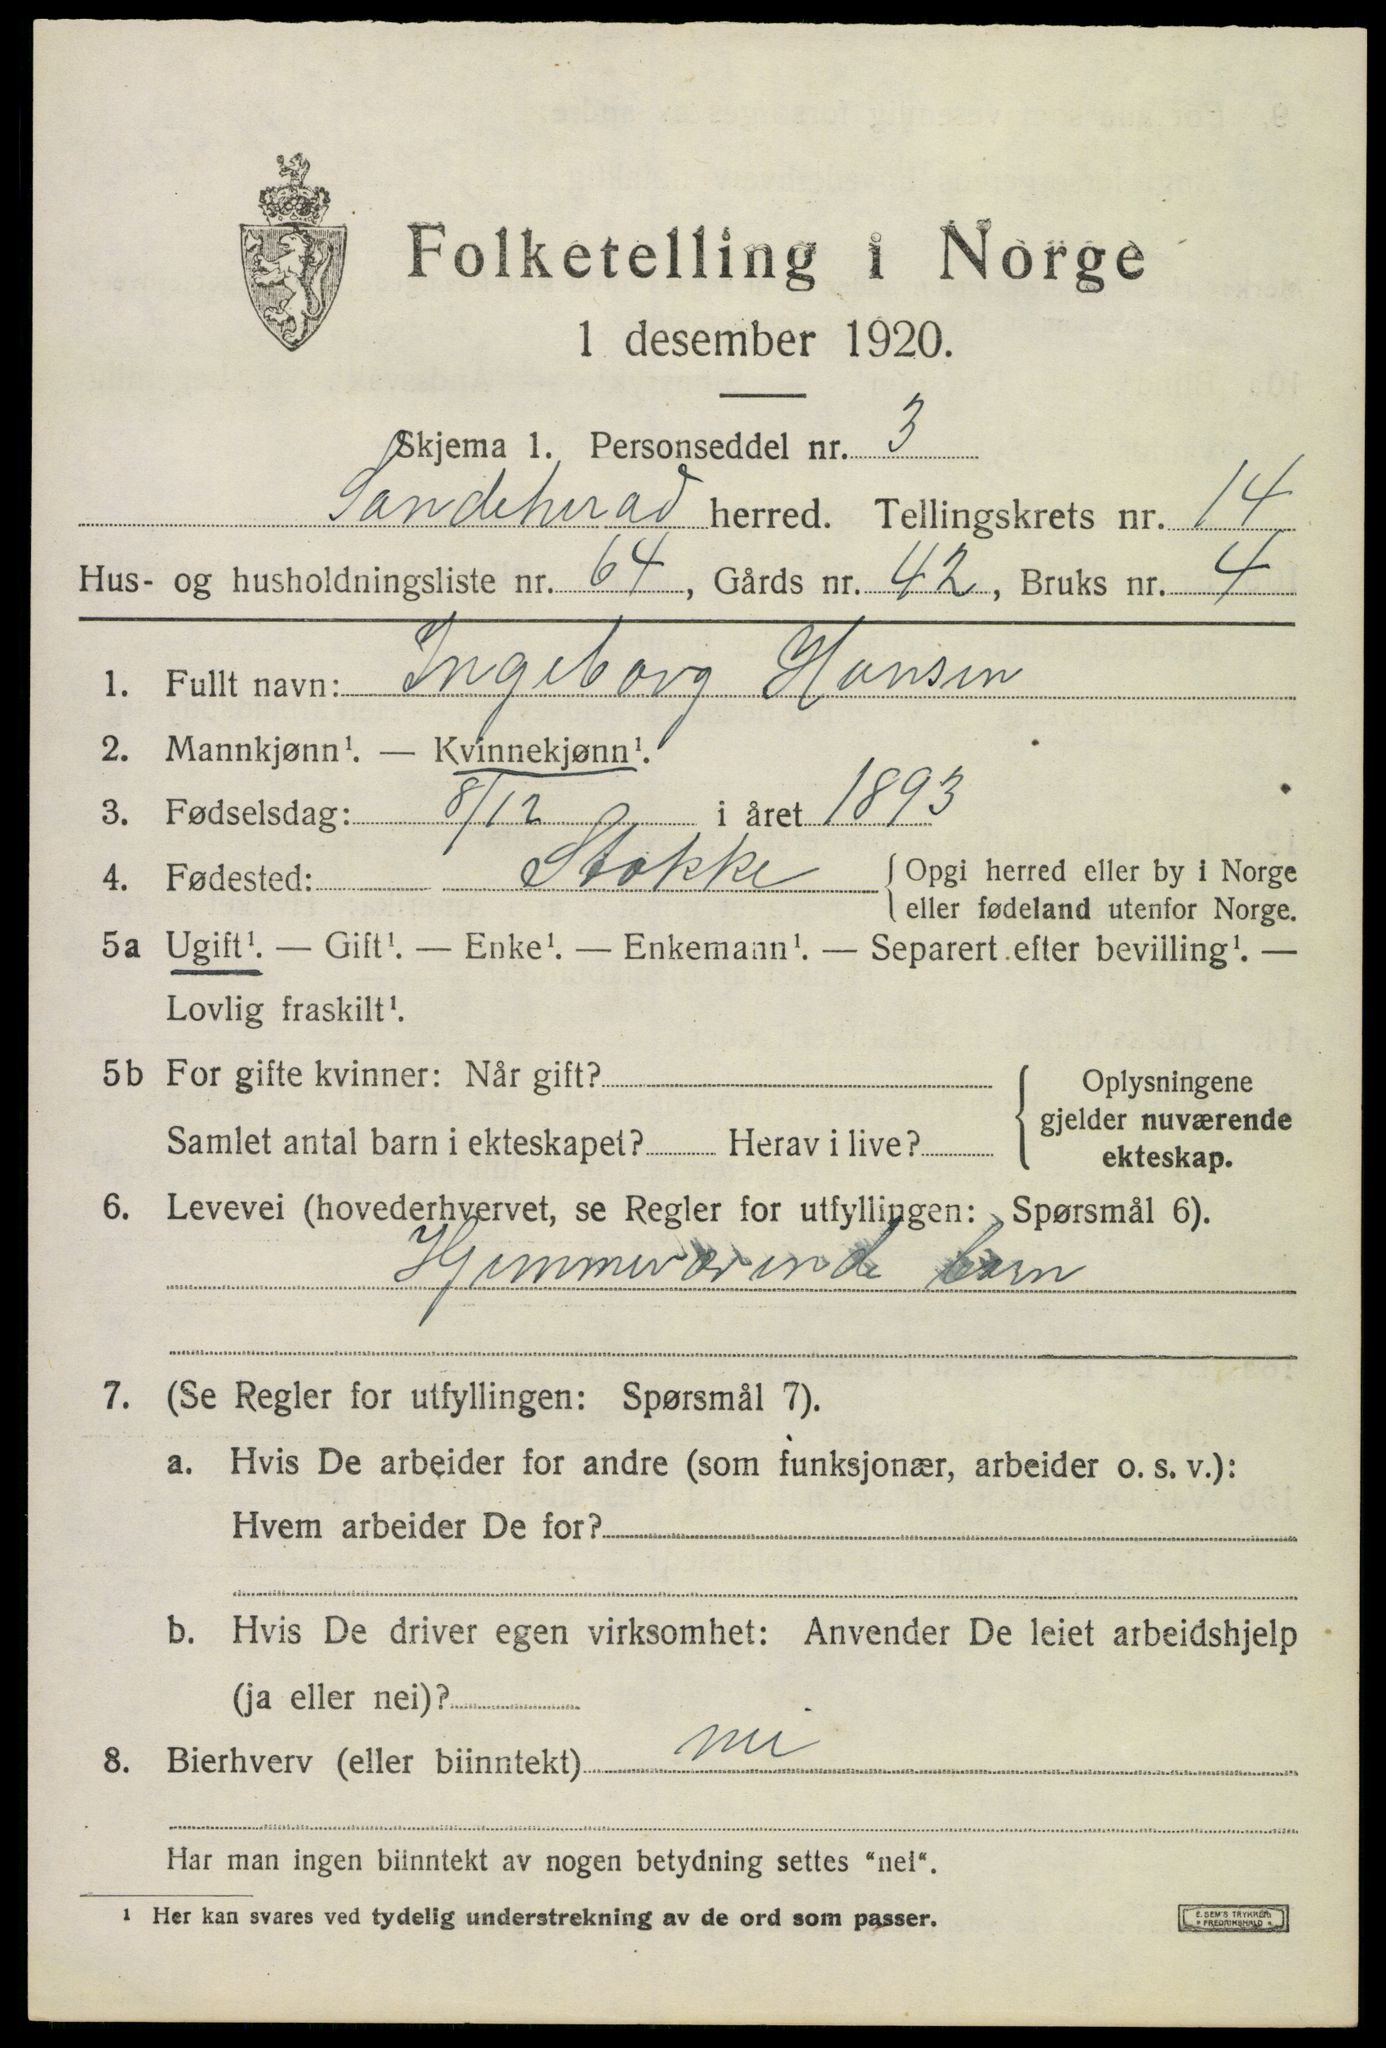 Folketelling i Norge
1 desember 1920.
Skjema 1. Personseddel nr. 3
Sandeherad herred. Tellingskrets nr. 14
Hus- og husholdningsliste nr. 64, Gårds nr. 42, Bruks nr. 4
1. Fullt navn: Ingeborg Hansen
2. Mannkjønn¹. — Kvinnekjønn¹.
3. Fødselsdag: 8/12 i året 1893
4. Fødested: Stokke { Opgi herred eller by i Norge
eller fødeland utenfor Norge.
5a Ugift¹. — Gift¹. — Enke¹. — Enkemann¹. — Separert efter bevilling¹. —
Lovlig fraskilt¹.
5b For gifte kvinner: Når gift?
Samlet antal barn i ekteskapet? Herav i live?
{ Oplysningene
gjelder nuværende
ekteskap.
6. Levevei (hovederhvervet, se Regler for utfyllingen: Spørsmål 6).
Hjemmeværende barn
7. (Se Regler for utfyllingen: Spørsmål 7).
a. Hvis De arbeider for andre (som funksjonær, arbeider o. s. v.):
Hvem arbeider De for?
b. Hvis De driver egen virksomhet: Anvender De leiet arbeidshjelp
(ja eller nei)?
8. Bierhverv (eller biinntekt) nei
Har man ingen biinntekt av nogen betydning settes "nei".
1 Her kan svares ved tydelig understrekning av de ord som passer.
E. SEM'S TRYKKERI
* FREDRIKSHALD *